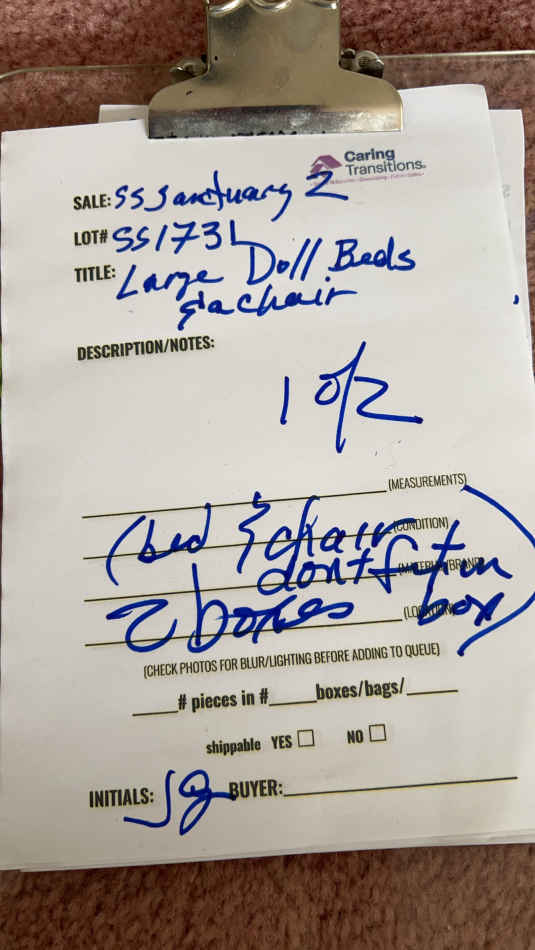 Caring
Transitions
SALE: SS Sanctuary 2
LOT# SS1731
TITLE: Large Doll Beds
& a chair
DESCRIPTION/NOTES:
1 of 2
(MEASUREMENTS)
(bed & chair (CONDITION)
dont fit in (MATERIAL/BRAND)
2 boxes (LOCATION) box)
(CHECK PHOTOS FOR BLUR/LIGHTING BEFORE ADDING TO QUEUE)
____# pieces in #____boxes/bags/____
shippable YES ☐ NO ☐
INITIALS: JG BUYER: